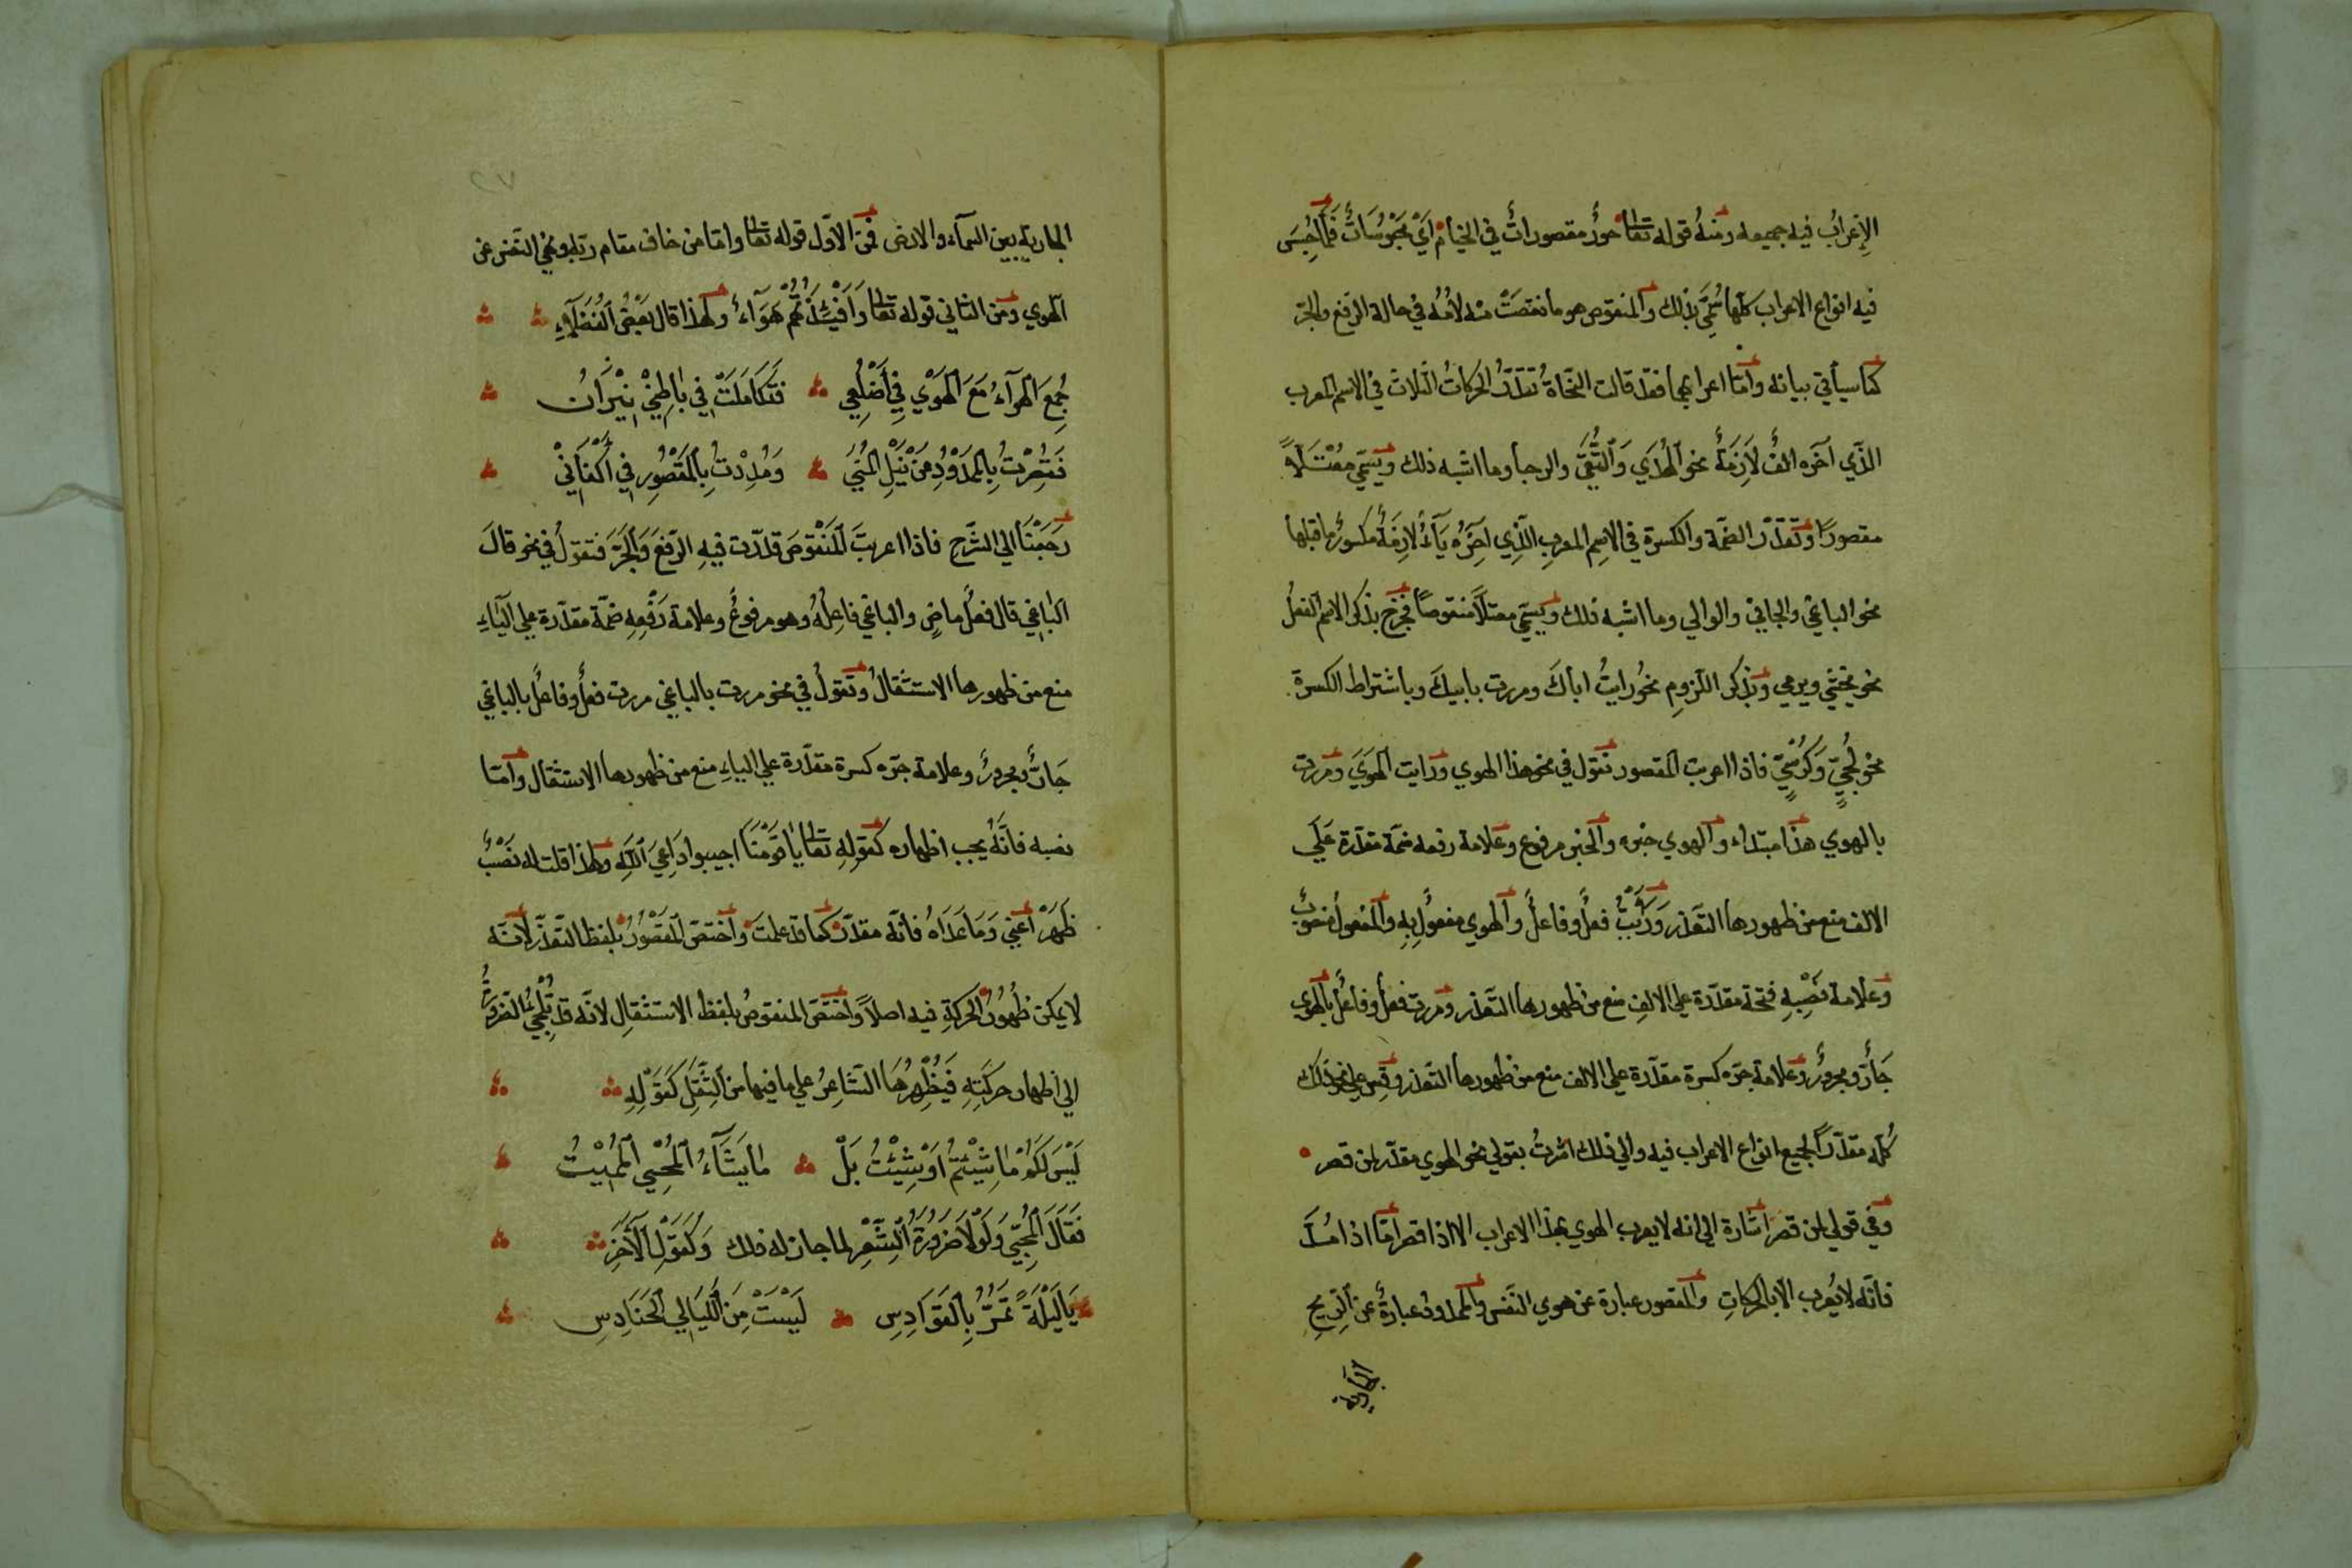 الإعرابُ فيه جميعه ومنهُ قوله تعالى حورٌ مقصوراتٌ في الخيام أيْ محبُوسَاتٌ فَلَمّا حُبِسَ
فيه انواع الاعراب كلها سُمِّيَ بذلك والمنقوص هو ما نقصَتْ منه لامُهُ في حالة الرّفع والجرّ
كما سيأتي بيانه وأمّا اعرابهما فقد قالت النّحاةُ تُقدّرُ الحركاتُ الثلاث في الاسم المعرب
الذّي آخره الفٌ لاَزِمَةٌ نحو الهُدَي وَالتُّقَى والرجأ وما اشبه ذلك ويُسَمّي مُعْتَلاًّ
مقصورًا وتُقدّر الضمّة والكسرة في الاسِم المعربِ الّذِي آخِرُه يَآءٌ لازِمَةٌ مكسورٌ ما قبلها
نحو الباغي والجاني والوالي وما اشبه ذلك ويسمّي معتلاًّ منقوصًا فخرج بذكر الاسم الفعلُ
نحو يخشي ويرمي وبذكر اللّزومِ نحو رايتُ اباكَ ومررت بابيكَ وباشتراط الكسرة
نحو لُجِّيٍّ وَكُرْسِيٍّ فاذا اعربت المقصور تقول في نحو هذا الهوي ورايت الهَوَيَ ومررت
بالهوي هذا مبتداء والهوي خبره والخبر مرفوع وعلامة رفعه ضمّة مقدّرة عَلَي
الالف منع من ظهورها التعذر وَرَأيْتُ فعلٌ وفاعلٌ والهوي مفعولٌ بِهِ والمفعولُ منصوبٌ
وعلامة نَصْبِهِ فتحة مقدّرة علي الالفِ منع من ظهورها التعذر ومررت فعلٌ وفاعلٌ بالهوي
جَارٌّ ومجرورٌ وعلامة جرّه كسرة مقدّرة علي الالف منع من ظهورها التعذر وقِس علي نحو ذلك
كُلّه مقدّرًا لجميع انواع الاعراب فيه والي ذلك اشرتُ بقولي نحو الهوي مقدّر لمن قصر
وفي قولي لمن قصر اشارة الي انه لا يعرب الهوي بهذا الاعراب الا اذا قصر امّا اذا مُدَّ
فانّه لا يُعرب الاّ بالحركاتِ والمقصور عبارة عن هوي النّفس والممدودُ عبارةٌ عن الرّيحِ
الجَارِيَة
٢٧
الجاريةِ بين السمآء والارض فمن الاوّل قوله تعالى وامّا من خاف مقام ربّه ونهي النّفس عن
الهوي ومن الثاني قوله تعالى وَاَفْئِدَتُهُمْ هَوَآءٌ ولهذا قال بَعْضُ الفُضَلآءِ
جُمِعَ الهوَآءُ مَعَ الهَوَيْ فِي أَضْلُعِي فَتَكَامَلَتْ فِي بٰاطِنِيْ نِيْرَانُ
فَقُصِرْتُ بِالممْدُوْدِ مِنْ نَيْلِ المُنَيَ وَمُدِدْتُ بِالمَقْصُوِر فِي أَكْفَانِيْ
رَجَعْنَا الي الشّرحِ فاذا اعربتَ المَنْقُوصَ قدّرت فيهِ الرّفعَ وَالجَرَّ فتقولُ في نحو قالَ
البٰاغِي قال فعلٌ ماضٍ والباغي فاعِلُهُ وهو مرفوعٌ وعلامة رَفْعِهِ ضمّة مقدّرة علي اليٰاءِ
منع من ظهورها الاستثقالُ وتقولُ في نحو مررت بالباغي مررت فعلٌ وفاعلٌ بالباغي
جَارٌّ ومجرورٌ وعلامة جرّه كسرة مقدّرة علي الياءِ منع من ظهورها الاستثقال وامّا
نصبه فانَّهُ يجب اظهاره كقولِهِ تعالى يٰا قَوْمَنَا اجيبوا دَاعِيَ اللّهِ ولهذا قلت له نَصْبٌ
ظَهَرْ أعني وَمَا عَدَاهُ فانّه مقدّرٌ كما قد علمتَ واختصّ المقصُورُ بلفظ التّعذّر لأنّه
لا يمكن ظُهُورُ الحركةِ فيه اصلاً واختَصّ المنقوصُ بلفظ الاستثقالِ لانّه قد تُلْجِيُ الضّرورَةُ
الي اظهار حركَتِهِ فَيُظْهِرُهَا الشّاعِرُ علي ما فيها من الثِّقَلِ كَقَوْلِهِ
لَيْسَ لَكُمْ مٰا شِيْئتُمُ اَوْ شِيْئتُ بَلْ مٰا يَشَآءُ المُحْيِي المُمِيْتُ
فَقَالَ المُحْيِي وَلَوْلاَ ضَرُورَةُ الشِّعْرِ لما جاز له ذلك وَكَقَوْلِ الآخَرِ
يَالَيْلَةً تَمُرُّ بِالقَوَادِسِ لَيْسَتْ مِنَ اللَّيَالِي الحَنَادِسِ